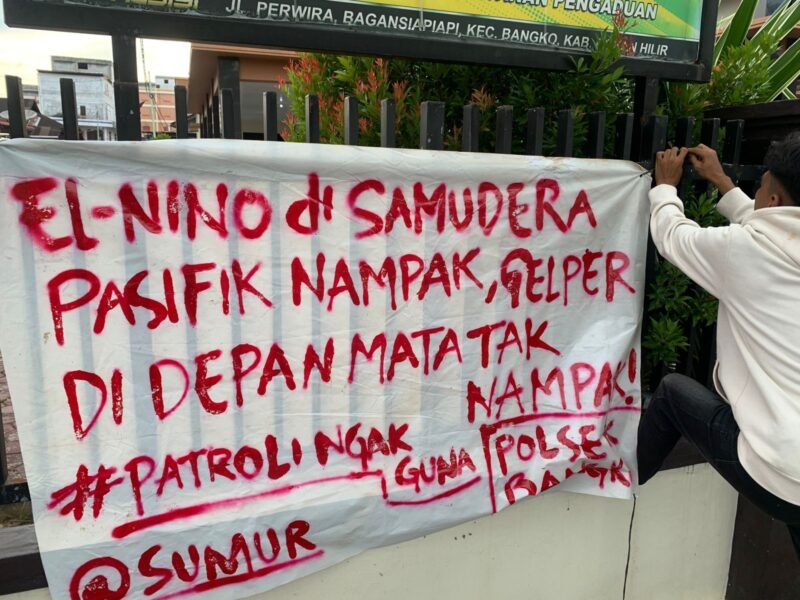 PENGADUAN
JL. PERWIRA, BAGANSIAPIAPI, KEC. BANGKO, KAB. HILIR
EL-NINO di SAMUDERA
PASIFIK NAMPAK, GELPER
DI DEPAN MATA TAK
NAMPAK!
#PATROLI NGAK
GUNA
POLSEK
@SUMUR